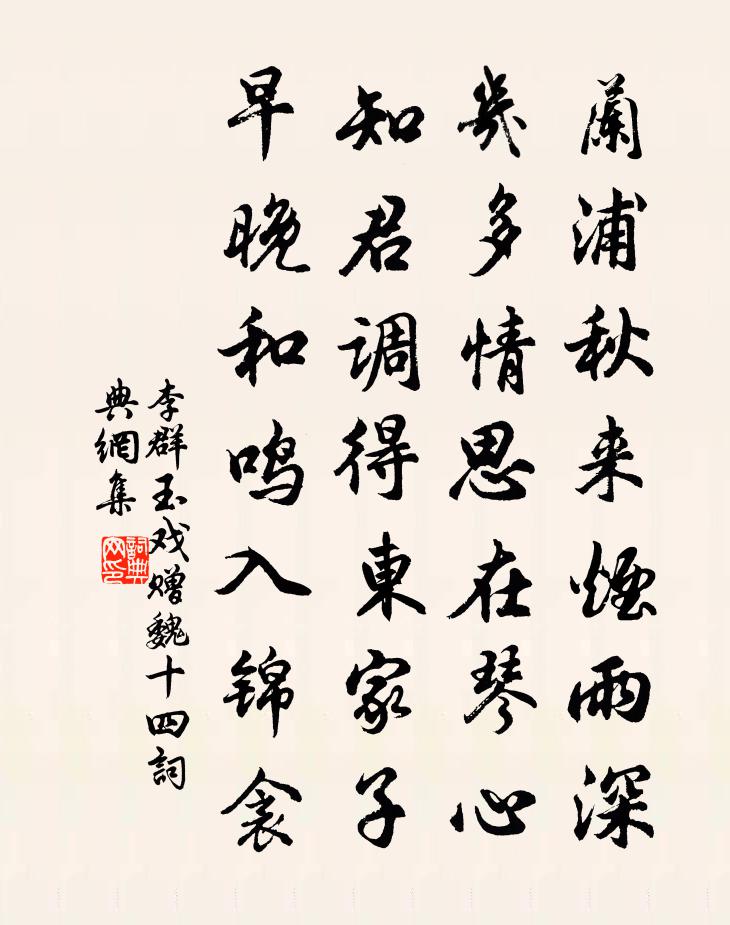 蘭浦秋来煙雨深
幾多情思在琴心
知君调得東家子
早晚和鸣入锦衾
李群玉戏赠魏十四詞
典網集
詞典网印